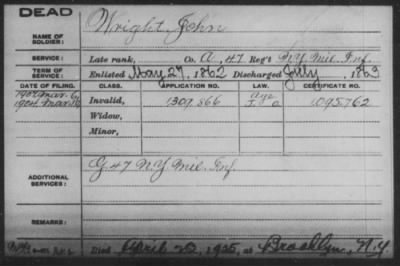 DEAD
NAME OF SOLDIER: Wright, John
SERVICE: Late rank, Co. A, 47 Reg't N.Y. Mil. Inf.
TERM OF SERVICE: Enlisted May 27, 1862 Discharged July, 1863
DATE OF FILING. CLASS. APPLICATION NO. LAW. CERTIFICATE NO.
1907 Mar. 6 Age
1904 Mar. Invalid, 1309,866 1095,762
Widow,
Minor,
ADDITIONAL SERVICES: G. 47 N.Y. Mil. Inf.
REMARKS:
Died April 1925, at Brooklyn, N.Y.